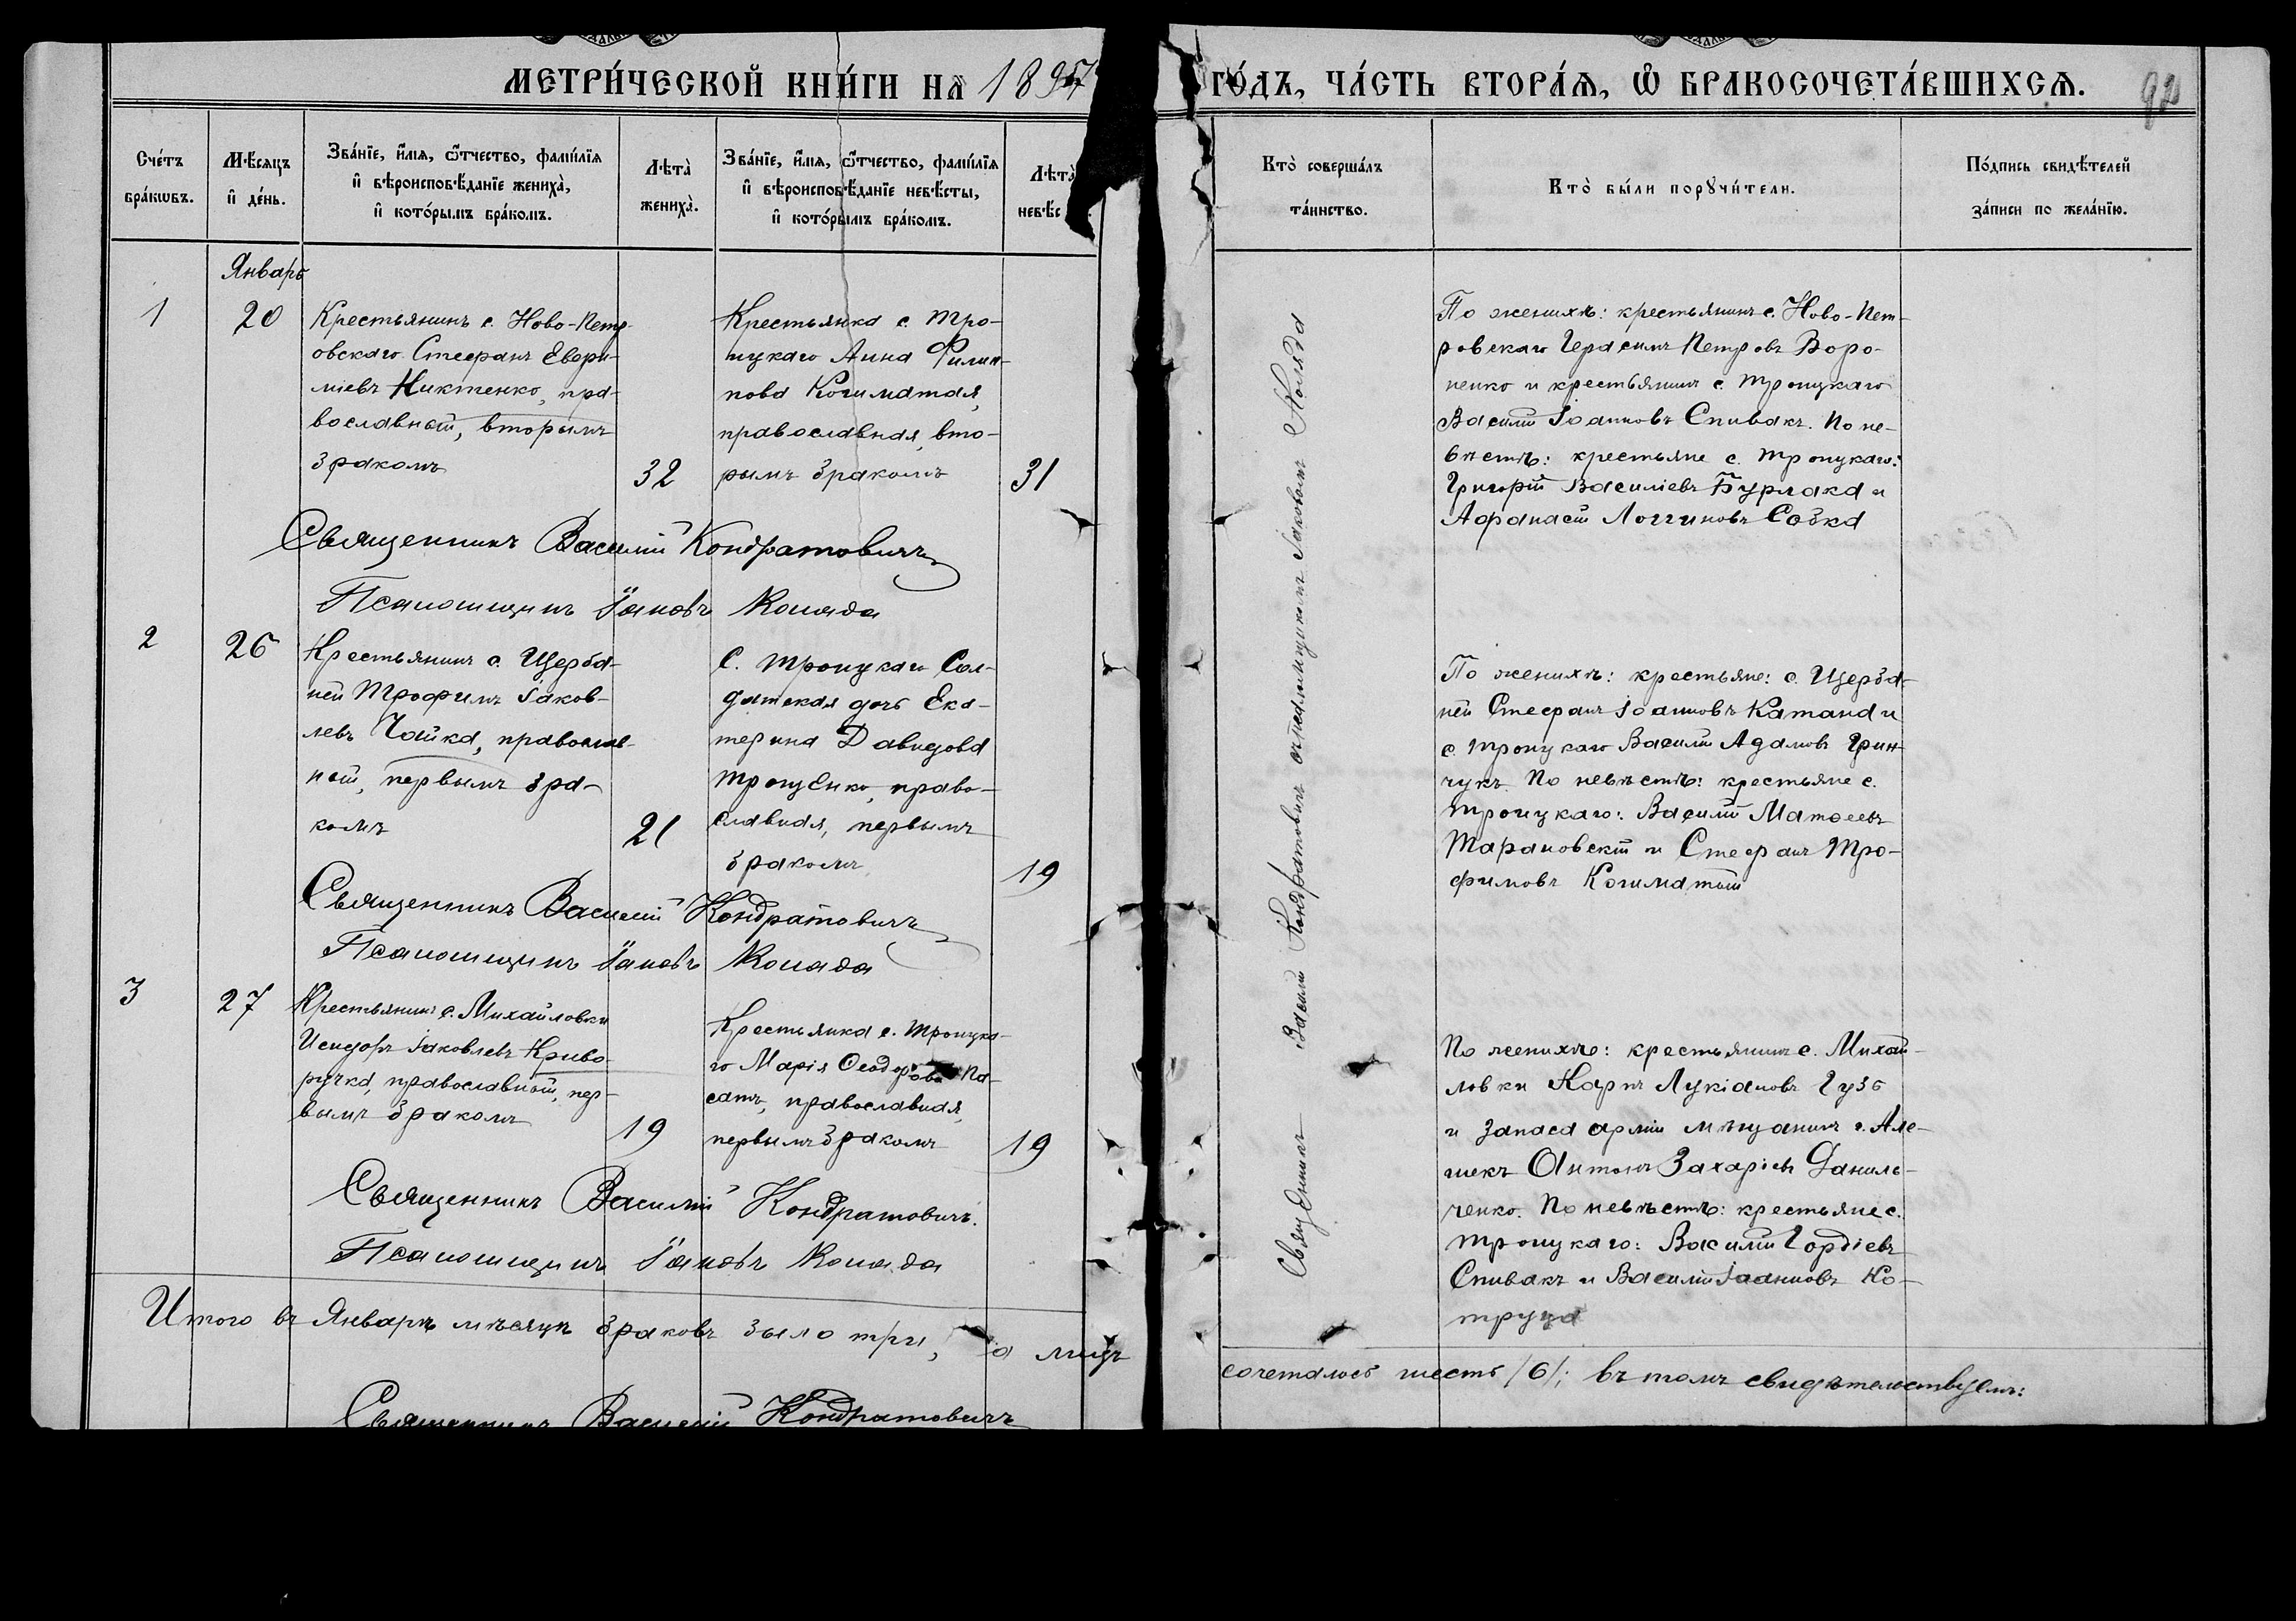 МЕТРИ́ЧЕСКОЙ КНИ́ГИ НА 1897
ГО́ДЪ, ЧА́СТЬ ВТОРА́Я, Ѽ БРАКОСОЧЕТА́ВШИХСЯ.
Сче́тъ бра́кѡвъ.
Мѣ́сяцъ и҆ де́нь.
Зва́нїе, и҆́мя, ѻ҆́тчество, фами́лїя
и҆ вѣроисповѣ́данїе жениха̀,
и҆ кото́рымъ бра́комъ.
Лѣта̀ жениха̀.
Зва́нїе, и҆́мя, ѻ҆́тчество, фами́лїя
и҆ вѣроисповѣ́данїе невѣ́сты,
и҆ кото́рымъ бра́комъ.
Лѣта̀ невѣ́с
Кто̀ соверша́лъ та́инство.
Кто̀ бы́ли порꙋчи́тели.
По́дпись свидѣ́телей за́писи по жела́нїю.
Январь
1
20
Крестьянинъ с. Ново-Петр-
овскаго Стефанъ Евфи-
міевъ Никтенко, пра-
вославный, вторымъ
бракомъ
32
Крестьянка с. Тро-
ицкаго Анна Филип-
пова Кочиматая,
православная, вто-
рымъ бракомъ
31
По женихѣ: крестьянинъ с. Ново-Пет-
ровскаго Герасимъ Петровъ Воро-
ненко и крестьянинъ с. Троицкаго
Василій Іоанновъ Спивакъ. По не-
вѣстѣ: крестьяне с. Троицкаго:
Григорій Василіевъ Бурлака и
Афанасій Логгиновъ Собка
Священникъ Василій Кондратовичъ
Псаломщикъ Іаковъ Коляда
2
26
Крестьянинъ с. Щерба-
ней Трофимъ Іаков-
левъ Чайка, православ-
ный, первымъ бра-
комъ
21
С. Троицкаго Сол-
датская дочь Ека-
терина Давидова
Троценко, право-
славная, первымъ
бракомъ
19
По женихѣ: крестьяне: с. Щерба-
ней Стефанъ Іоанновъ Катана и
с. Троицкаго Василій Адамовъ Грин-
чукъ. По невѣстѣ: крестьяне с.
Троицкаго: Василій Матѳеевъ
Тарановскій и Стефанъ Тро-
фимовъ Кочиматый
Священникъ Василій Кондратовичъ
Псаломщикъ Іаковъ Коляда
3
27
Крестьянинъ с. Михайловки
Исидоръ Іаковлевъ Криво-
ручка, православный, пер-
вымъ бракомъ
19
Крестьянка с. Троицка-
го Марія Ѳеодорова Па-
сатъ, православная,
первымъ бракомъ
19
По женихѣ: крестьянинъ с. Михай-
ловки Карпъ Лукіановъ Гузь
и запаса арміи мѣщанинъ г. Але-
шекъ Антонъ Захаріевъ Даниль-
ченко. По невѣстѣ: крестьяне с.
Троицкаго: Василій Гордіевъ
Спивакъ и Василій Іоанновъ Ко-
труца
Священникъ Василій Кондратовичъ.
Псаломщикъ Іаковъ Коляда
Священникъ Василій Кондратовичъ съ псаломщикомъ Іаковомъ Коляда
Итого въ Январѣ мѣсяцѣ браковъ было три, а лицъ
сочеталось шесть /6/; въ томъ свидѣтельствуемъ:
Священникъ Василій Кондратовичъ